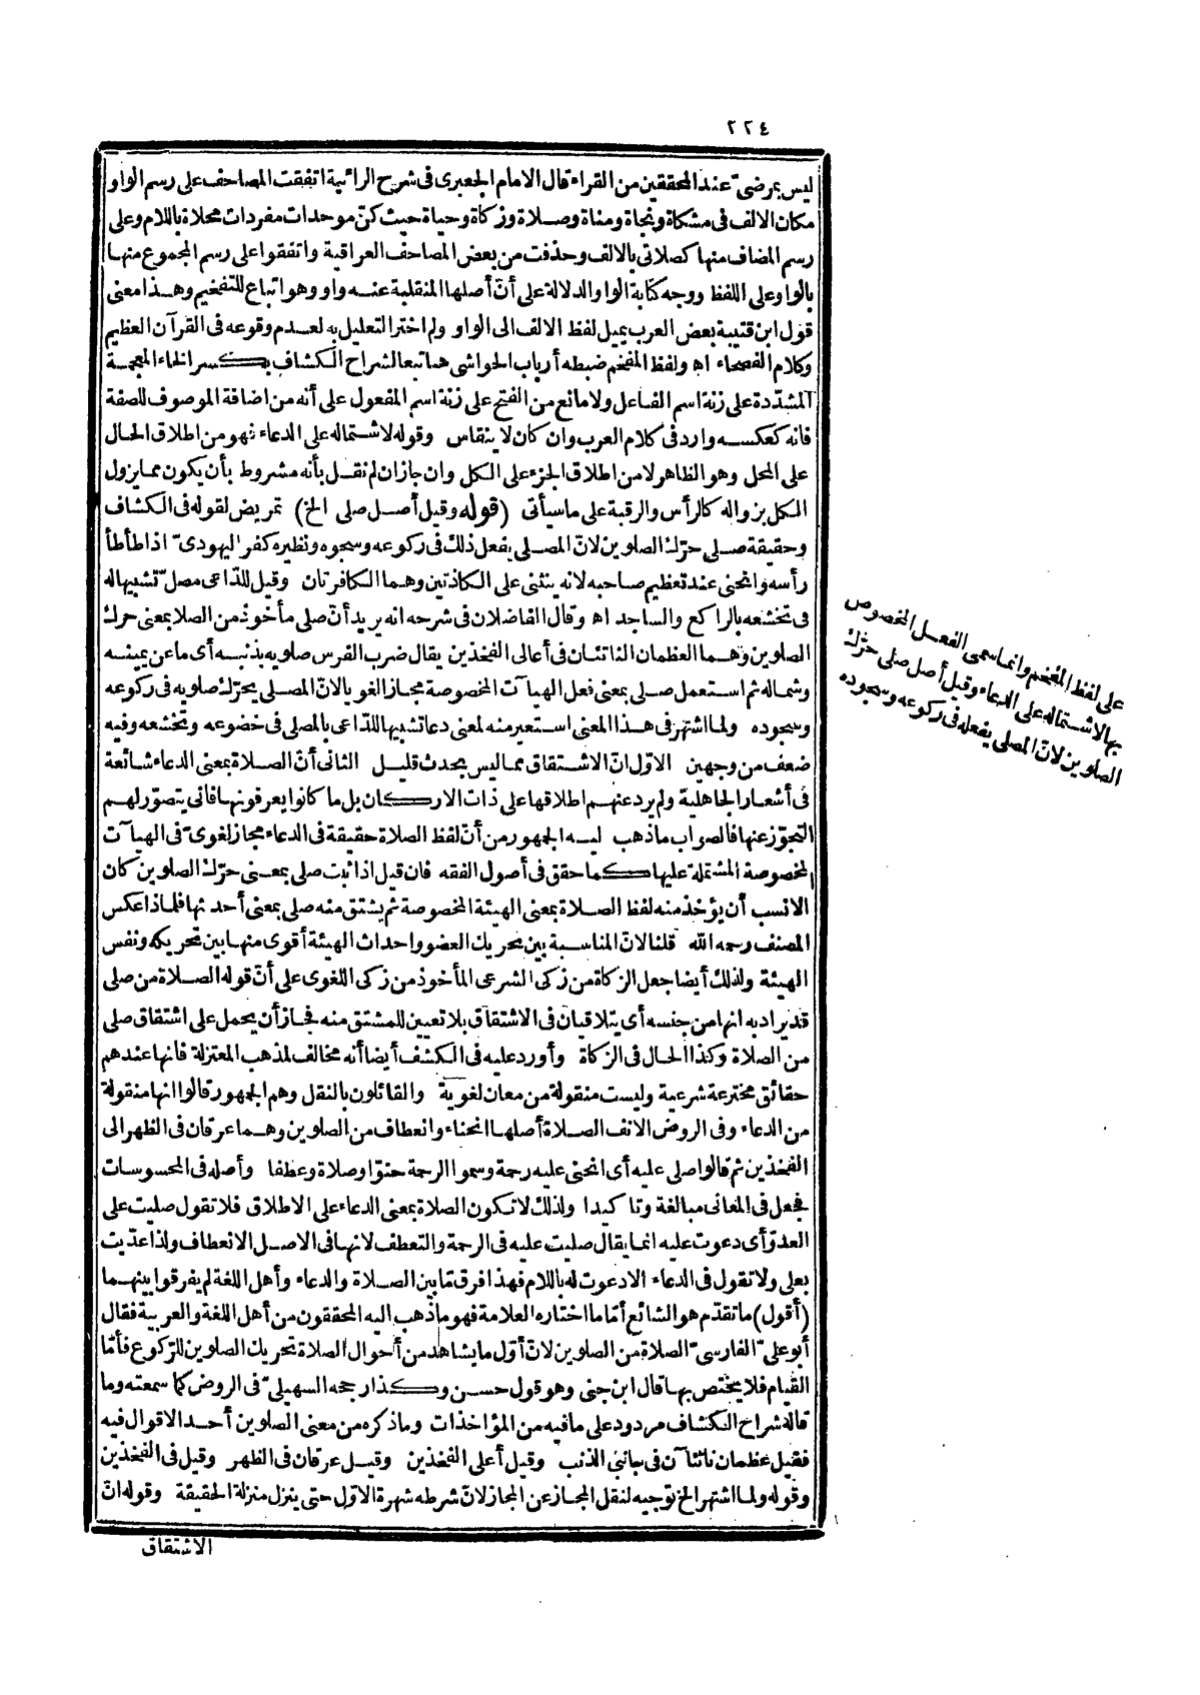 ٢٢٤
ليس بمرضىّ عند المحققين من القراء قال الامام الجعبرى فى شرح الرائية اتفقت المصاحف على رسم الواو
مكان الالف فى مشكاة ونجاة ومناة وصلاة وزكاة وحياة حيث كنّ موحدات مفردات محلاة باللام وعلى
رسم المضاف منها كصلاتى بالالف وحذفت من بعض المصاحف العراقية واتفقوا على رسم المجموع منها
بالواو على اللفظ ووجه كتابة الواو الدلالة على أنّ أصلها المنقلبة عنه واو وهو اتباع للتفخيم وهذا معنى
قول ابن قتيبة بعض العرب يميل لفظ الالف الى الواو ولم اختر التعليل به لعدم وقوعه فى القرآن العظيم
وكلام الفصحاء اه ولفظ المفخم ضبطه أرباب الحواشى هنا تبعا لشراح الكشاف بكسر الخاء المعجمة
المشدّدة على زنة اسم الفاعل ولا مانع من الفتح على زنة اسم المفعول على أنه من اضافة الموصوف للصفة
فانه كعكسه وارد فى كلام العرب وان كان لا ينقاس وقوله لاشتماله على الدعاء فهو من اطلاق الحال
على المحل وهو الظاهر لا من اطلاق الجزء على الكل وان جاز ان لم نقل بأنه مشروط بأن يكون مما يزول
الكل بزواله كالرأس والرقبة على ما سيأتى (قوله وقيل أصل صلى الخ) تمريض لقوله فى الكشاف
وحقيقة صلى حرّك الصلوين لانّ المصلى يفعل ذلك فى ركوعه وسجوده ونظيره كفر اليهودىّ اذا طأطأ
رأسه وانحنى عند تعظيم صاحبه لانه ينثنى على الكاذتين وهما الكافرتان وقيل للدّاعى مصلّ تشبيها له
فى تخشعه بالراكع والساجد اه وقال الفاضلان فى شرحه انه يريد أنّ صلى مأخوذ من الصلا بمعنى حرك
الصلوين وهما العظمان الناتئان فى أعالى الفخذين يقال ضرب الفرس صلويه بذنبه أى ما عن يمينه
وشماله ثم استعمل صلى بمعنى فعل الهيآت المخصوصة مجازا لغويا لانّ المصلى يحرّك صلويه فى ركوعه
وسجوده ولما اشتهر فى هذا المعنى استعير منه لمعنى دعا تشبيها للدّاعى بالمصلى فى خضوعه وتخشعه وفيه
ضعف من وجهين الاوّل انّ الاشتقاق مما ليس بحدث قليل الثانى أنّ الصلاة بمعنى الدعاء شائعة
فى أشعار الجاهلية ولم يرد عنهم اطلاقها على ذات الاركان بل ما كانوا يعرفونها فانى يتصوّر لهم
التجوّز عنها فالصواب ما ذهب ليه الجمهور من أنّ لفظ الصلاة حقيقة فى الدعاء مجاز لغوىّ فى الهيآت
المخصوصة المشتملة عليها كما حقق فى أصول الفقه فان قيل اذا ثبت صلى بمعنى حرّك الصلوين كان
الانسب أن يؤخذ منه لفظ الصلاة بمعنى الهيئة المخصوصة ثم يشتق منه صلى بمعنى أحدثها فلماذا عكس
المصنف رحمه الله قلنا لانّ المناسبة بين تحريك العضو واحداث الهيئة أقوى منها بين تحريكه ونفس
الهيئة ولذلك أيضا جعل الزكاة من زكى الشرعى المأخوذ من زكى اللغوى على أنّ قوله الصلاة من صلى
قد يراد به انها من جنسه أى يتلاقيان فى الاشتقاق بلا تعيين للمشتق منه فجاز أن يحمل على اشتقاق صلى
من الصلاة وكذا الحال فى الزكاة وأورد عليه فى الكشف أيضا أنه مخالف لمذهب المعتزلة فانها عندهم
حقائق مخترعة شرعية وليست منقولة من معان لغوية والقائلون بالنقل وهم الجمهور قالوا انها منقولة
من الدعاء وفى الروض الانف الصلاة أصلها انحناء وانعطاف من الصلوين وهما عرقان فى الظهر الى
الفخذين ثم قالوا صلى عليه أى انحنى عليه رحمة وسموا الرحمة حنوّا وصلاة وعطفا وأصله فى المحسوسات
فجعل فى المعانى مبالغة وتاكيدا ولذلك لا تكون الصلاة بمعنى الدعاء على الاطلاق فلا تقول صليت على
العدوّ أى دعوت عليه انما يقال صليت عليه فى الرحمة والتعطف لانها فى الاصل الانعطاف ولذا عدّيت
بعلى ولا تقول فى الدعاء الا دعوت له باللام فهذا فرق ما بين الصلاة والدعاء وأهل اللغة لم يفرقوا بينهما
(أقول) ما تقدّم هو الشائع أمّا ما اختاره العلامة فهو ما ذهب اليه المحققون من أهل اللغة والعربية فقال
أبو علىّ الفارسىّ الصلاة من الصلوين لانّ أوّل ما يشاهد من أحوال الصلاة تحريك الصلوين للرّكوع فأمّا
القيام فلا يختص بها قال ابن جنى وهو قول حسن وكذا رجحه السهيلىّ فى الروض كما سمعته وما
قاله شراح الكشاف مردود على ما فيه من المؤاخذات وما ذكره من معنى الصلوين أحد الاقوال فيه
فقيل عظمان ناتئان فى جانبى الذنب وقيل أعلى الفخذين وقيل عرقان فى الظهر وقيل فى الفخذين
وقوله ولما اشتهر الخ توجيه لنقل المجاز عن المجاز لانّ شرطه شهرة الاوّل حتى ينزل منزلة الحقيقة وقوله انّ
الاشتقاق
على لفظ المفخم وانما سمى الفعل المخصوص
بها لاشتماله على الدعاء وقيل أصل صلى حرّك
الصلوين لانّ المصلى يفعله فى ركوعه وسجوده